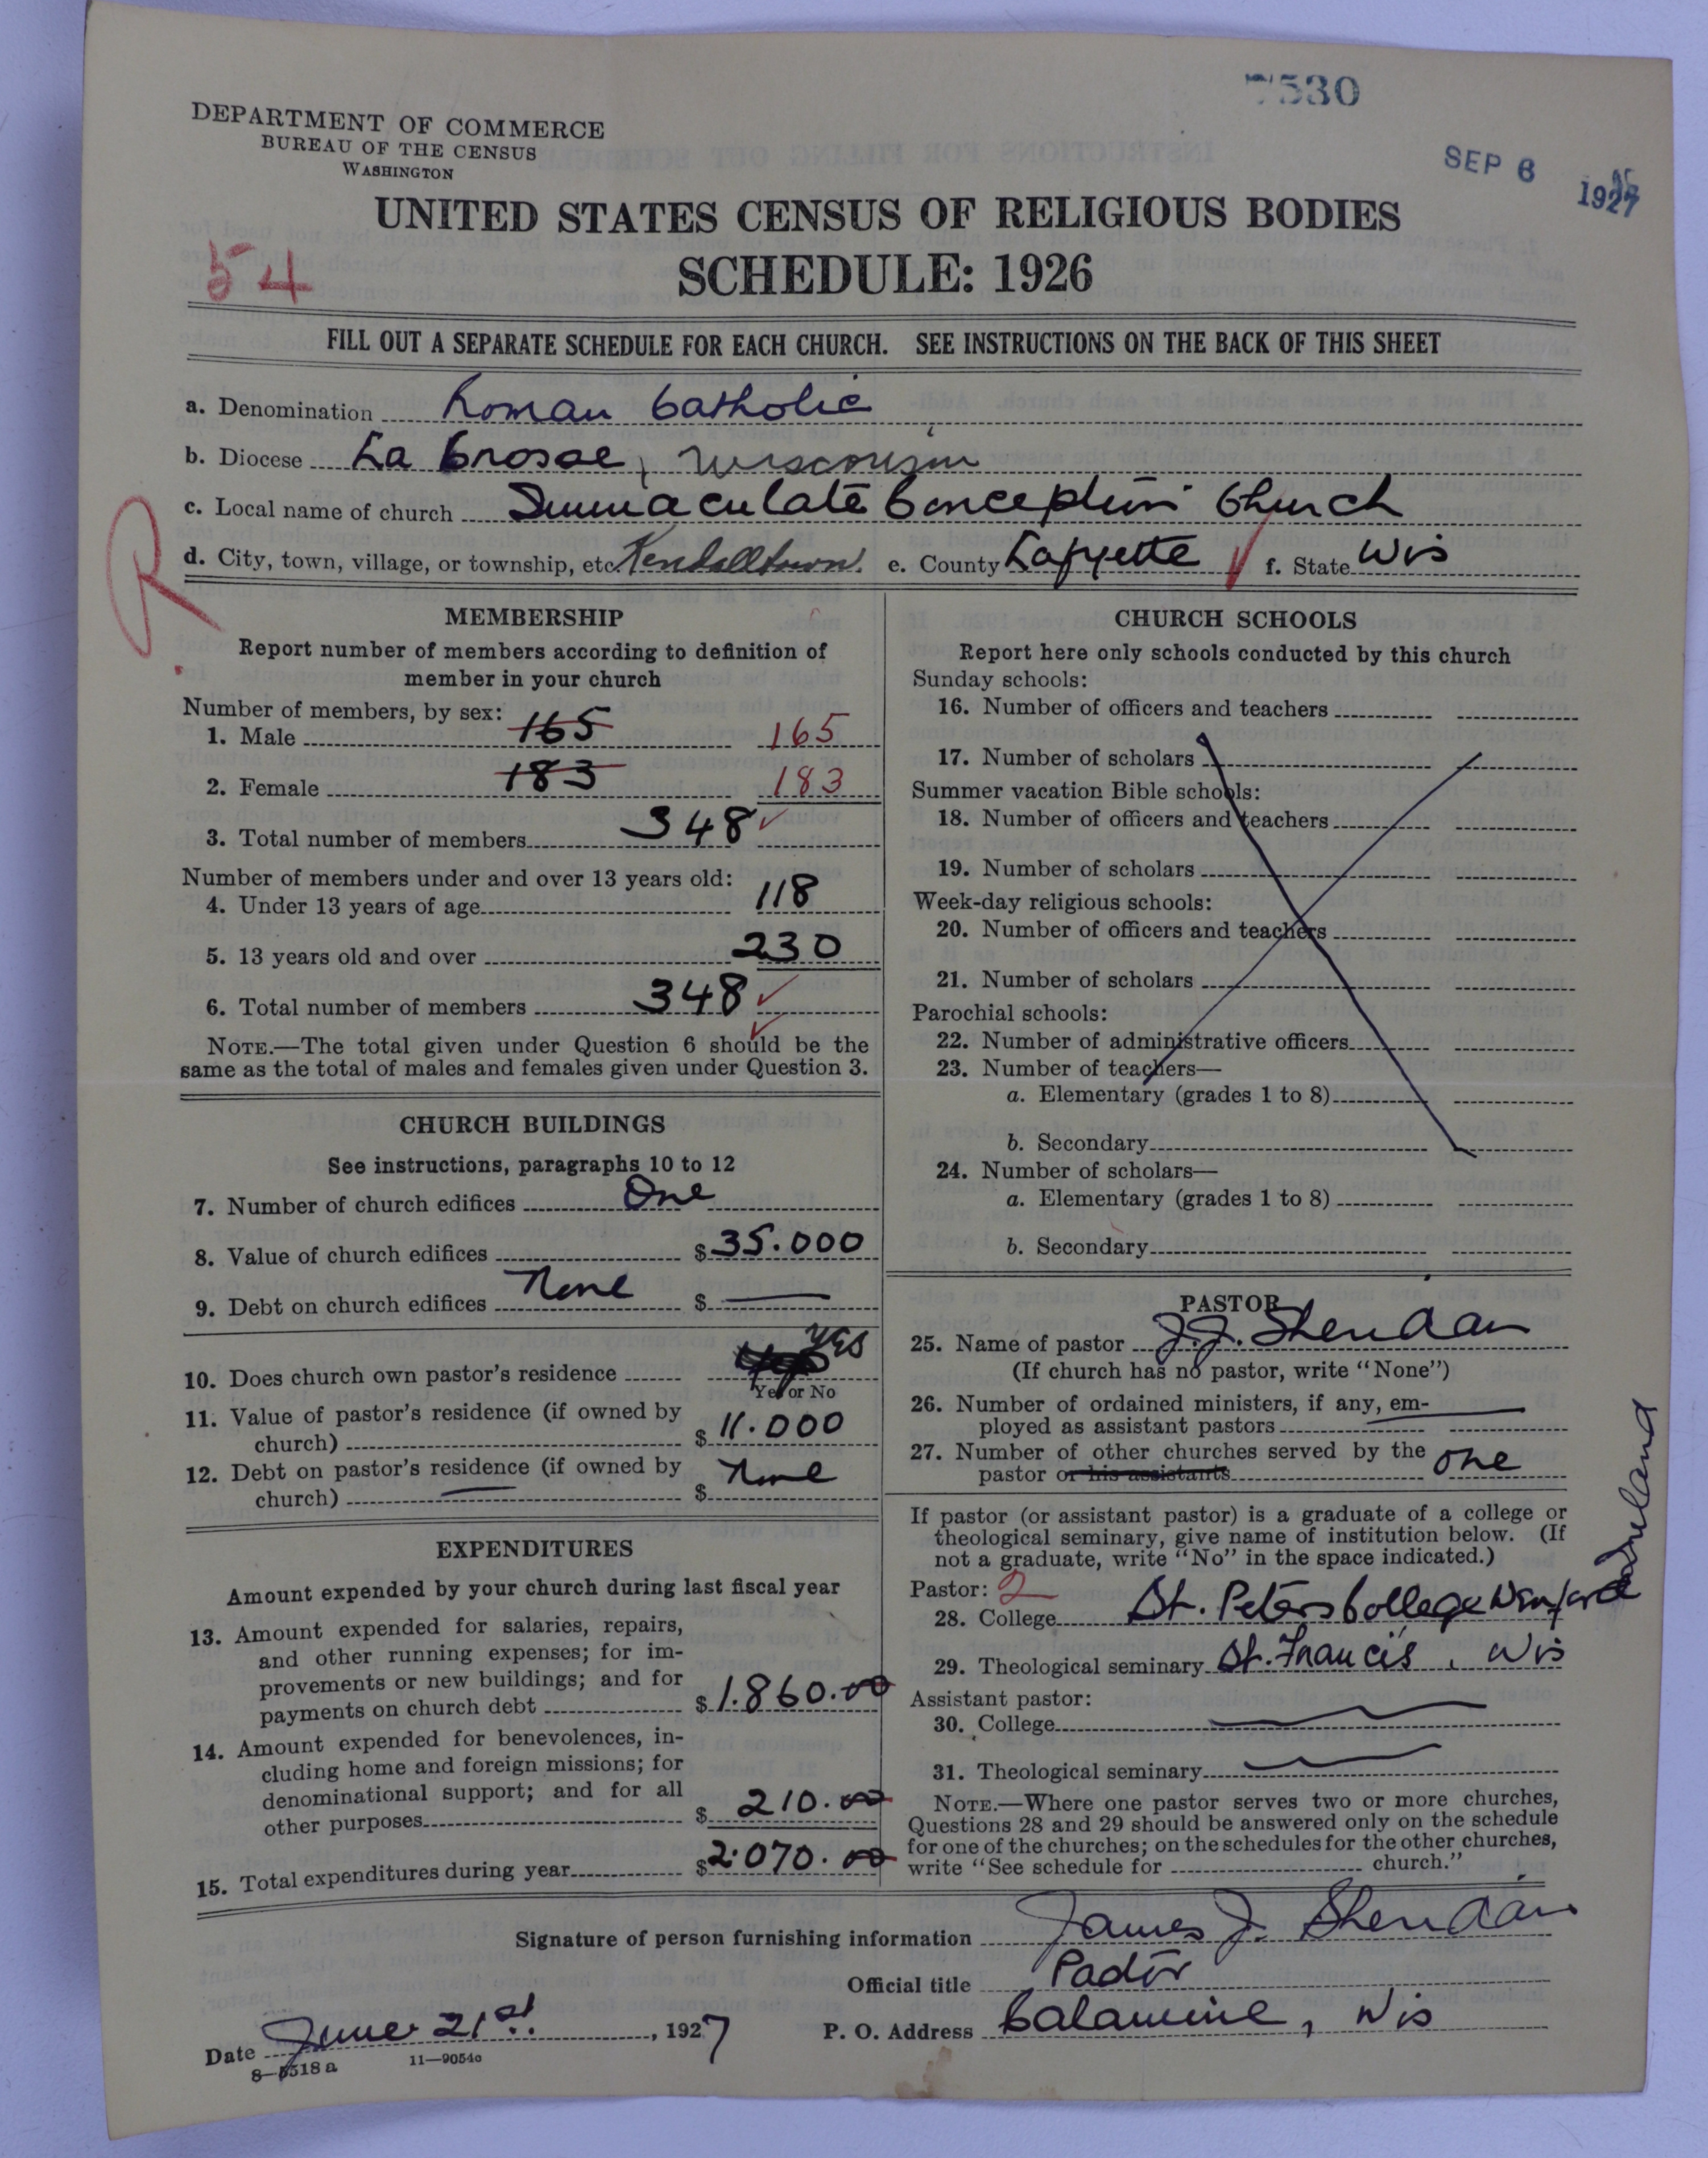 7530
DEPARTMENT OF COMMERCE
BUREAU OF THE CENSUS
WASHINGTON
SEP 6 1927
UNITED STATES CENSUS OF RELIGIOUS BODIES
54
SCHEDULE: 1926
FILL OUT A SEPARATE SCHEDULE FOR EACH CHURCH. SEE INSTRUCTIONS ON THE BACK OF THIS SHEET
a. Denomination Roman Catholic
b. Diocese La Crosse, Wisconsin
c. Local name of church Immaculate Conception Church
d. City, town, village, or township, etc. Kendalltown. e. County Lafyette f. State Wis
R
MEMBERSHIP
Report number of members according to definition of
member in your church
Number of members, by sex:
1. Male 165 165
2. Female 183 183
3. Total number of members 348
Number of members under and over 13 years old:
4. Under 13 years of age 118
5. 13 years old and over 230
6. Total number of members 348
NOTE.—The total given under Question 6 should be the
same as the total of males and females given under Question 3.
CHURCH BUILDINGS
See instructions, paragraphs 10 to 12
7. Number of church edifices One
8. Value of church edifices $ 35.000
9. Debt on church edifices None $
10. Does church own pastor's residence YES
Yes or No
11. Value of pastor's residence (if owned by
church) $ 11.000
12. Debt on pastor's residence (if owned by
church) $ None
EXPENDITURES
Amount expended by your church during last fiscal year
13. Amount expended for salaries, repairs,
and other running expenses; for im-
provements or new buildings; and for
payments on church debt $ 1.860.00
14. Amount expended for benevolences, in-
cluding home and foreign missions; for
denominational support; and for all
other purposes $ 210.00
15. Total expenditures during year $ 2.070.00
CHURCH SCHOOLS
Report here only schools conducted by this church
Sunday schools:
16. Number of officers and teachers
17. Number of scholars
Summer vacation Bible schools:
18. Number of officers and teachers
19. Number of scholars
Week-day religious schools:
20. Number of officers and teachers
21. Number of scholars
Parochial schools:
22. Number of administrative officers
23. Number of teachers—
a. Elementary (grades 1 to 8)
b. Secondary
24. Number of scholars—
a. Elementary (grades 1 to 8)
b. Secondary
PASTOR
25. Name of pastor J.J. Sheridan
(If church has no pastor, write "None")
26. Number of ordained ministers, if any, em-
ployed as assistant pastors
27. Number of other churches served by the
pastor or his assistants One
If pastor (or assistant pastor) is a graduate of a college or
theological seminary, give name of institution below. (If
not a graduate, write "No" in the space indicated.)
Pastor: 2
28. College St. Peters College Wexford Ireland
29. Theological seminary St. Francis, Wis
Assistant pastor:
30. College
31. Theological seminary
NOTE.—Where one pastor serves two or more churches,
Questions 28 and 29 should be answered only on the schedule
for one of the churches; on the schedules for the other churches,
write "See schedule for church."
Signature of person furnishing information James J. Sheridan
Official title Pastor
Date June 21st, 1927 P. O. Address Calamine, Wis
8—5518 a 11—9054a